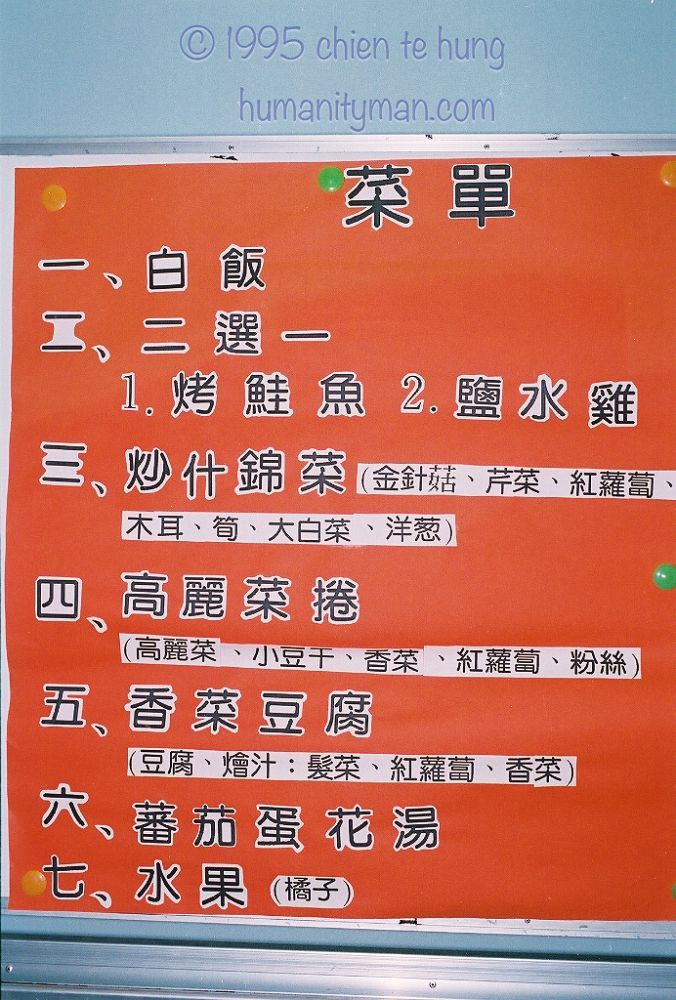 © 1995 chien te hung
humanityman.com
菜單
一、白飯
二、二選一
1. 烤鮭魚 2. 鹽水雞
三、炒什錦菜(金針菇、芹菜、紅蘿蔔、
木耳、筍、大白菜、洋葱)
四、高麗菜捲
(高麗菜、小豆干、香菜、紅蘿蔔、粉絲)
五、香菜豆腐
(豆腐、燴汁：髮菜、紅蘿蔔、香菜)
六、蕃茄蛋花湯
七、水果(橘子)